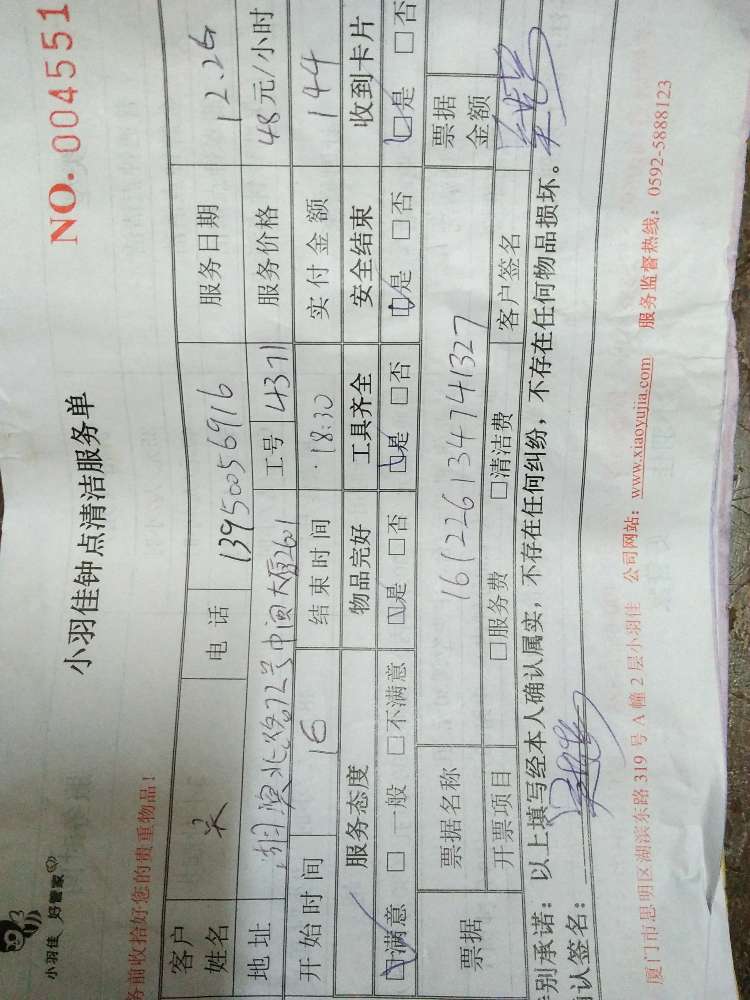 小羽佳 好管家
小羽佳钟点清洁服务单
NO. 004551
务前收拾好您的贵重物品!
客户姓名 吴 电话 13950056916 服务日期 12.26
地址 湖滨北路72号中闽大厦2601 工号 4371 服务价格 48元/小时
开始时间 16 结束时间 18:30 实付金额 144
服务态度 物品完好 工具齐全 安全结束 收到卡片
☑满意 □一般 □不满意 ☑是 □否 ☑是 □否 ☑是 □否 ☑是 □否
票据 票据名称 161226134741327 票据金额
开票项目 □服务费 □清洁费 客户签名
别承诺:以上填写经本人确认属实,不存在任何纠纷,不存在任何物品损坏。
认签名:
厦门市思明区湖滨东路 319 号 A 幢 2 层小羽佳 公司网站:www.xiaoyujia.com 服务监督热线:0592-5888123